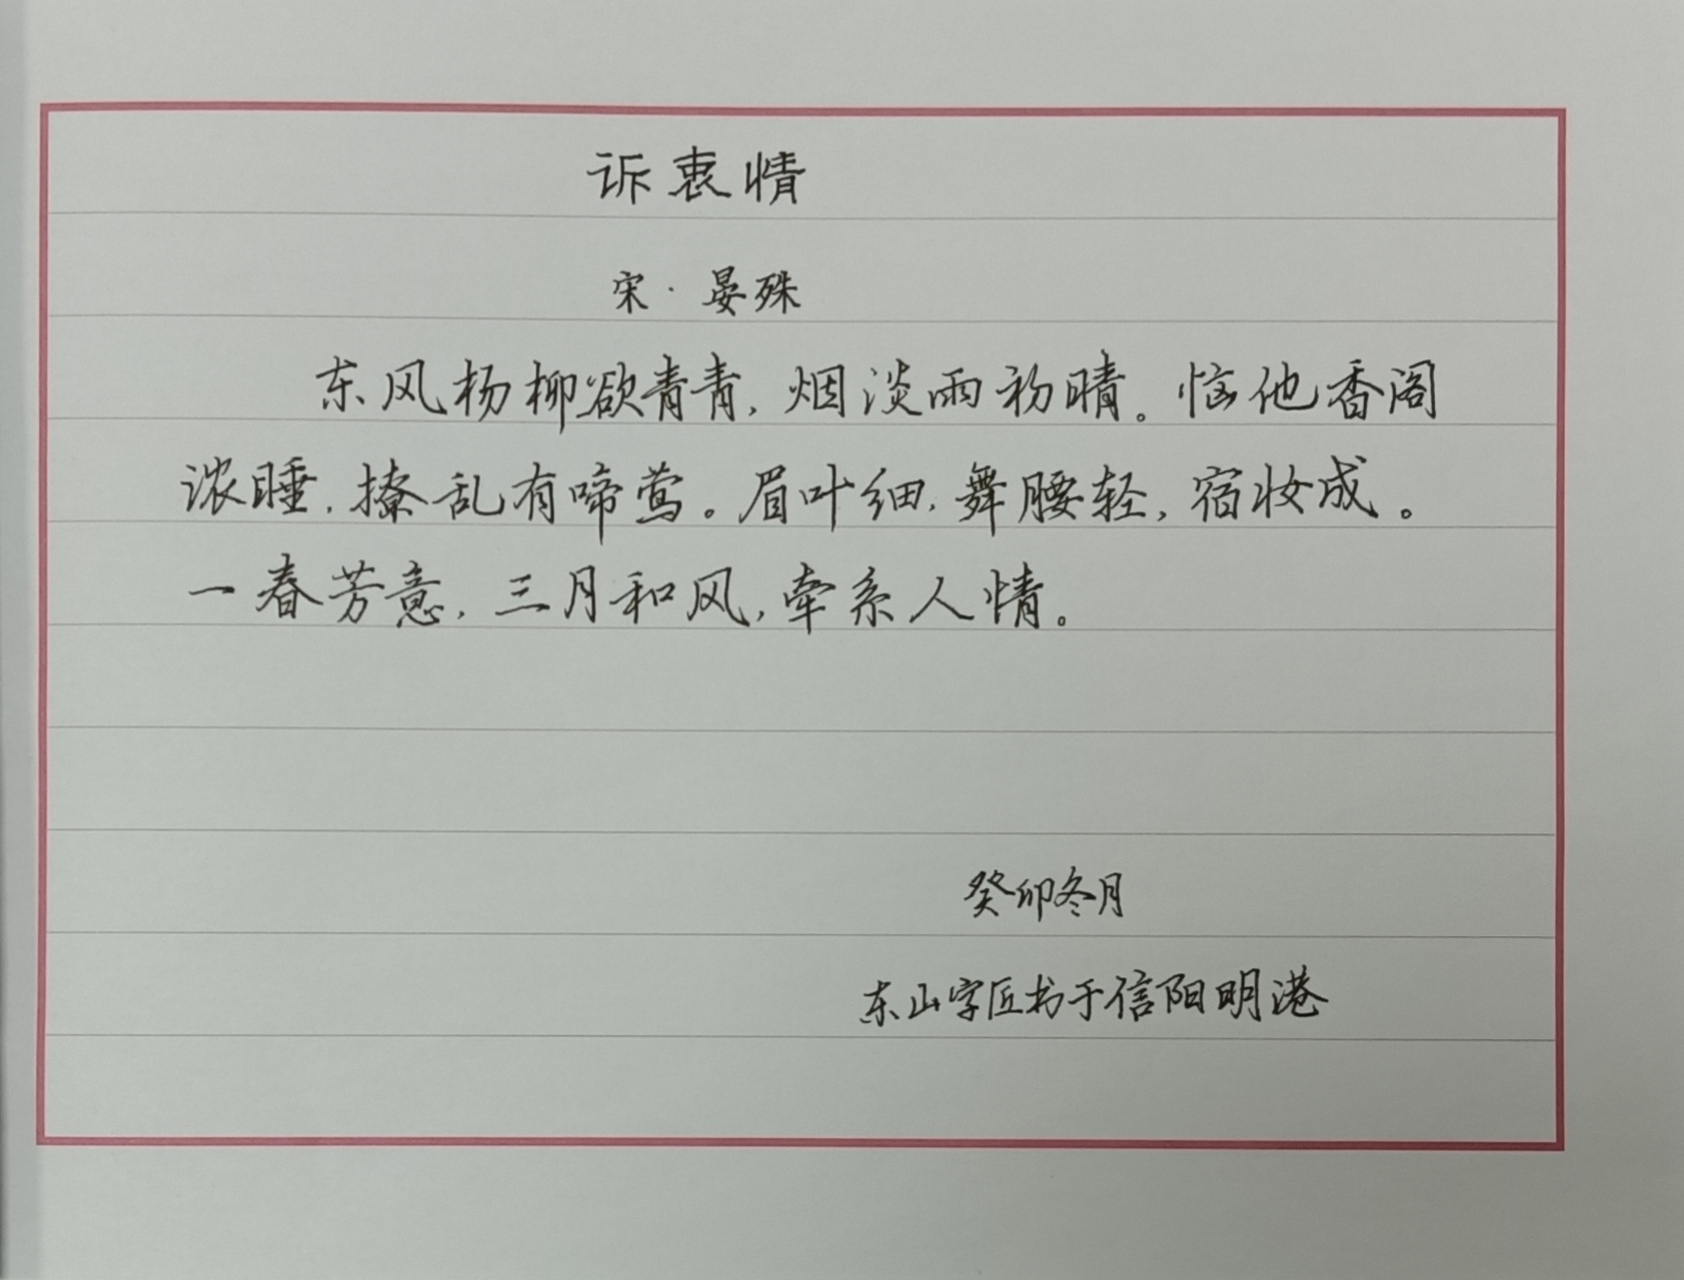 诉衷情
宋·晏殊
东风杨柳欲青青,烟淡雨初晴。恼他香阁
浓睡,撩乱有啼莺。眉叶细,舞腰轻,宿妆成。
一春芳意,三月和风,牵系人情。
癸卯冬月
东山字匠书于信阳明港